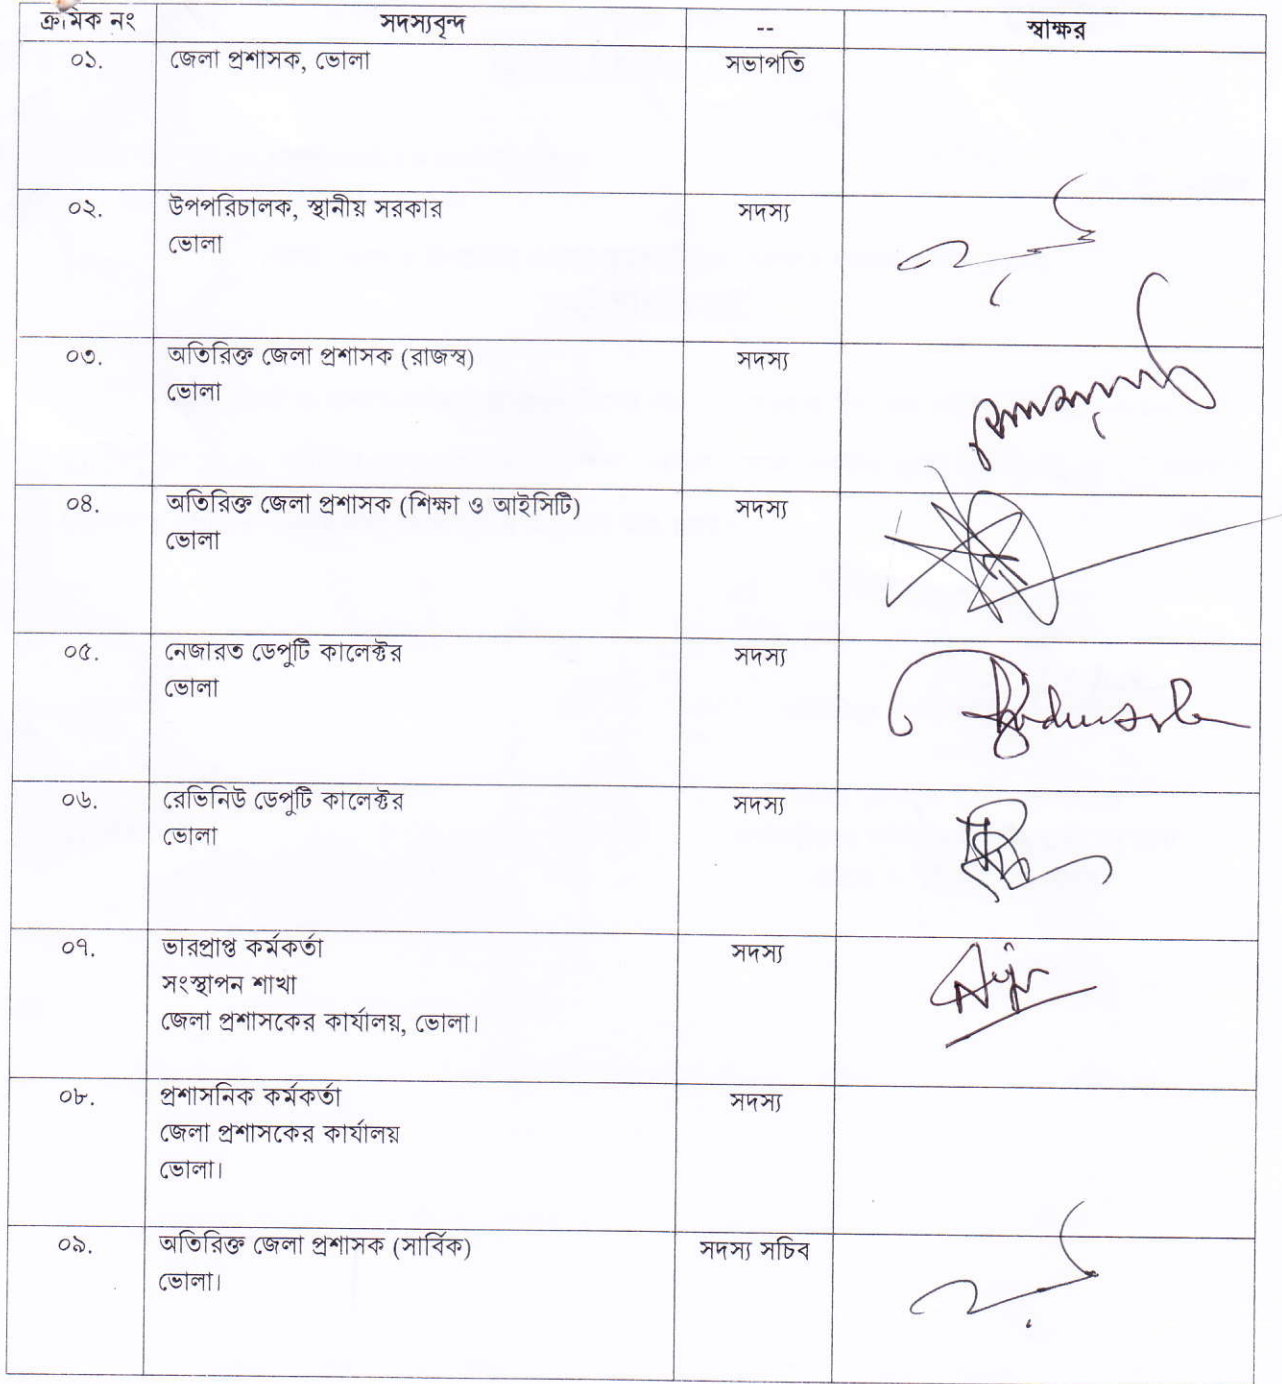 ক্রমিক নং সদস্যবৃন্দ -- স্বাক্ষর
০১. জেলা প্রশাসক, ভোলা সভাপতি
০২. উপপরিচালক, স্থানীয় সরকার সদস্য
ভোলা
০৩. অতিরিক্ত জেলা প্রশাসক (রাজস্ব) সদস্য
ভোলা
০৪. অতিরিক্ত জেলা প্রশাসক (শিক্ষা ও আইসিটি) সদস্য
ভোলা
০৫. নেজারত ডেপুটি কালেক্টর সদস্য
ভোলা
০৬. রেভিনিউ ডেপুটি কালেক্টর সদস্য
ভোলা
০৭. ভারপ্রাপ্ত কর্মকর্তা সদস্য
সংস্থাপন শাখা
জেলা প্রশাসকের কার্যালয়, ভোলা।
০৮. প্রশাসনিক কর্মকর্তা সদস্য
জেলা প্রশাসকের কার্যালয়
ভোলা।
০৯. অতিরিক্ত জেলা প্রশাসক (সার্বিক) সদস্য সচিব
ভোলা।